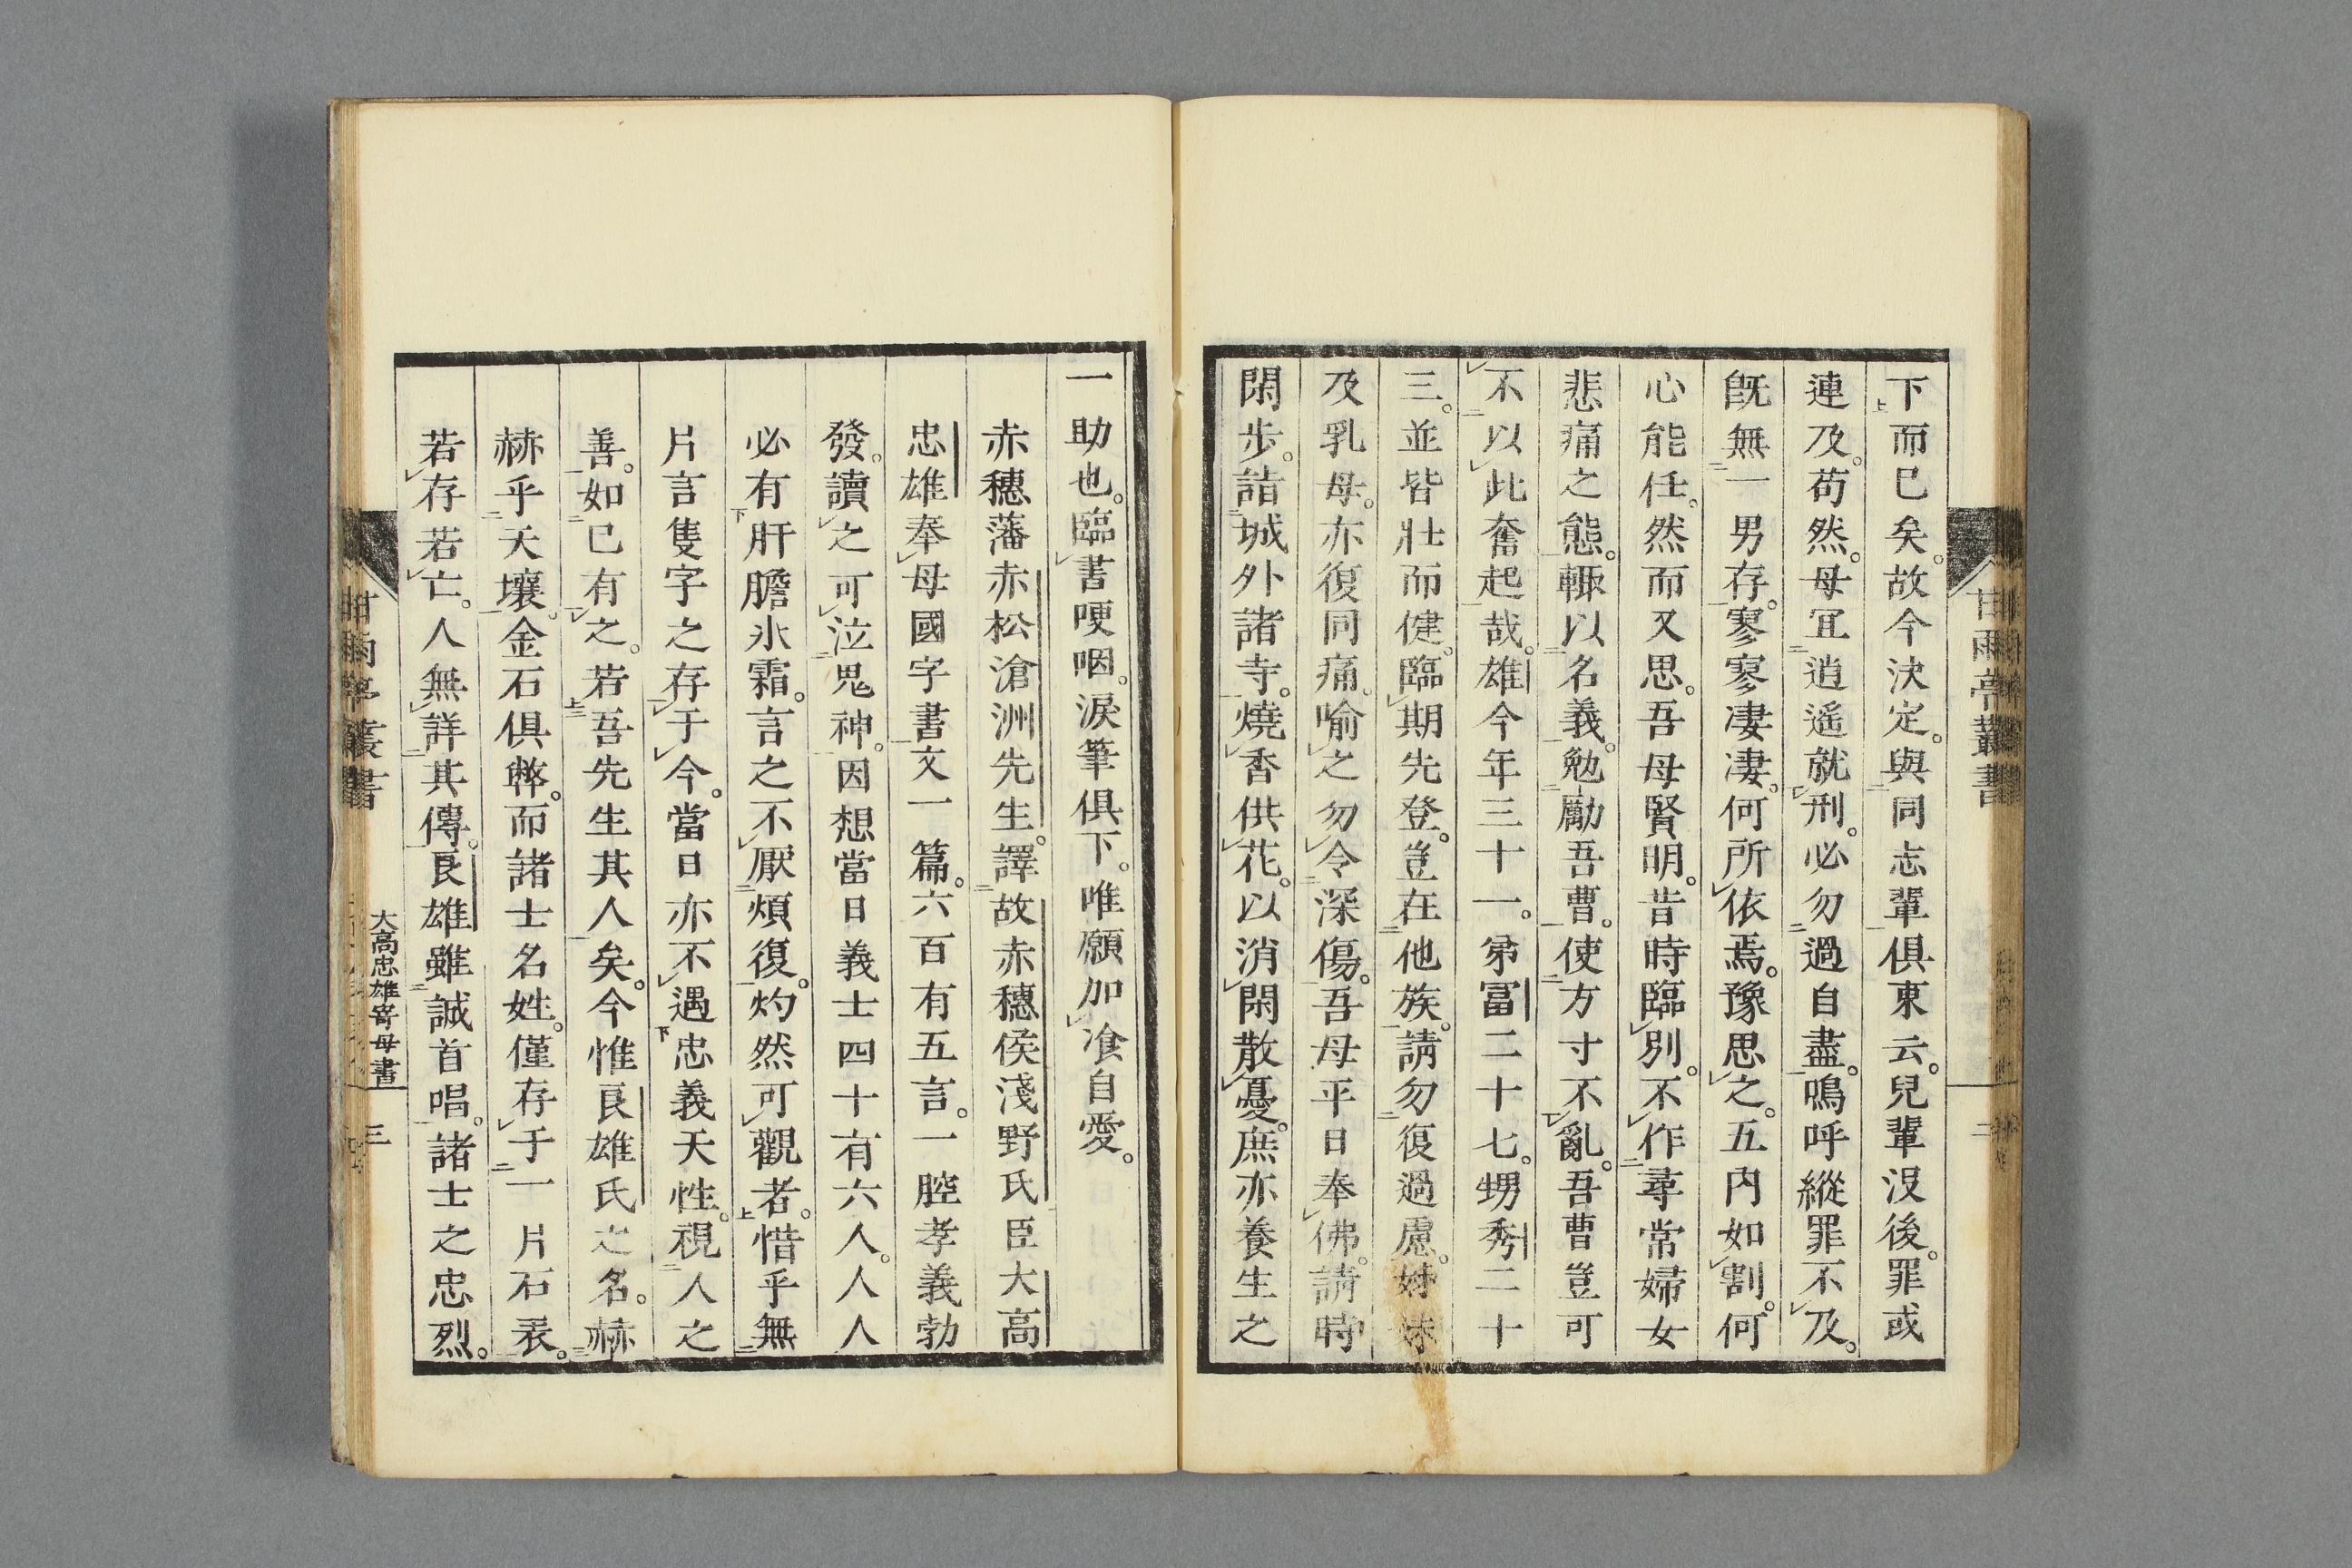 下而已矣。故今決定。與同志輩俱東云。兒輩沒後。罪或
連及。苟然。母宜逍遙就刑。必勿過自盡。鳴呼縱罪不及。
既無一男存。寥寥凄凄。何所依焉。豫思之。五內如割。何
心能任。然而又思。吾母賢明。昔時臨別。不作尋常婦女
悲痛之態。輙以名義。勉勵吾曹。使方寸不亂。吾曹豈可
不以此奮起哉。雄今年三十一。弟冨二十七。甥秀二十
三。並皆壯而健。臨期先登。豈在他族。請勿復過慮。姉妹
及乳母。亦復同痛。喻之勿令深傷。吾母平日奉佛。請時
閑步。詣城外諸寺。燒香供花。以消閑散憂。庶亦養生之
甘雨亭叢書
二
一助也。臨書哽咽。淚筆俱下。唯願加飡自愛。
赤穗藩赤松滄洲先生。譯故赤穗侯淺野氏臣大高
忠雄奉母國字書文一篇。六百有五言。一腔孝義勃
發。讀之可泣鬼神。因想當日義士四十有六人。人人
必有肝膽氷霜。言之不厭煩復。灼然可觀者。惜乎無
片言隻字之存于今。當日亦不遇忠義天性。視人之
善。如已有之。若吾先生其人矣。今惟良雄氏之名。赫
赫乎天壤。金石俱弊。而諸士名姓。僅存于一片石表。
若存若亡。人無詳其傳。良雄雖誠首唱。諸士之忠烈。
甘雨亭叢書
大高忠雄寄母書
三